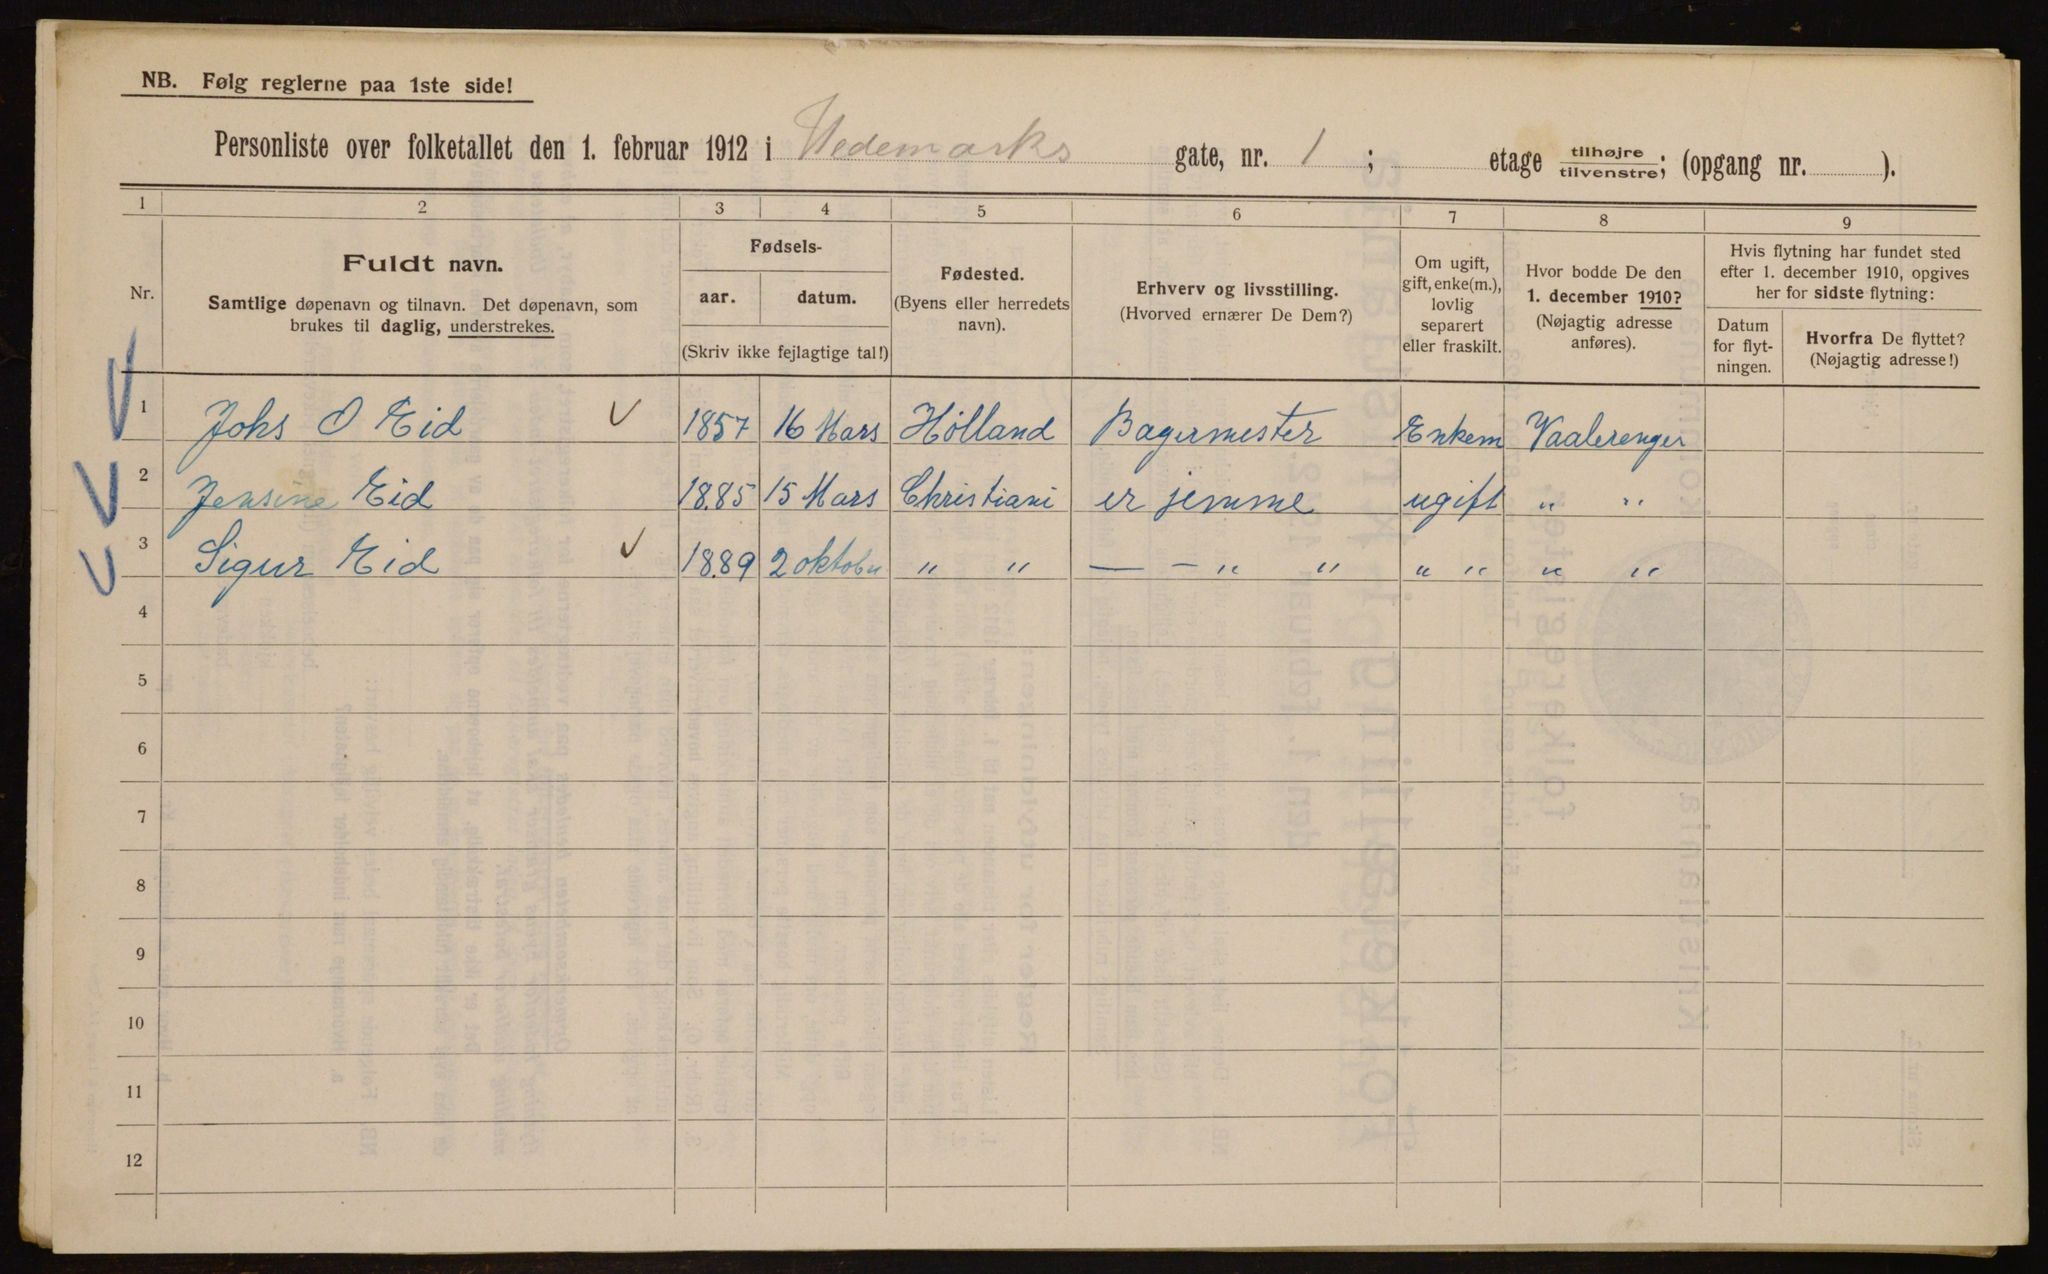 NB. Følg reglerne paa 1ste side!
Personliste over folketallet den 1. februar 1912 i Hedemarks gate, nr. 1 ; etage tilhøjre tilvenstre; (opgang nr. ).
1 2 3 4 5 6 7 8 9
Nr.
Fuldt navn.
Samtlige døpenavn og tilnavn. Det døpenavn, som
brukes til daglig, understrekes.
Fødsels-
aar. datum.
(Skriv ikke fejlagtige tal!)
Fødested.
(Byens eller herredets
navn).
Erhverv og livsstilling.
(Hvorved ernærer De Dem?)
Om ugift,
gift, enke(m.),
lovlig
separert
eller fraskilt.
Hvor bodde De den
1. december 1910?
(Nøjagtig adresse
anføres).
Hvis flytning har fundet sted
efter 1. december 1910, opgives
her for sidste flytning:
Datum
for flyt-
ningen.
Hvorfra De flyttet?
(Nøjagtig adresse!)
1 Johs O Eid 1857 16 Mars Hølland Bagermester Enkem Vaalerengen
2 Jensine Eid 1885 15 Mars Christiani er jemme ugift " "
3 Sigur Eid 1889 2 oktober " " — — " " " " " "
4
5
6
7
8
9
10
11
12